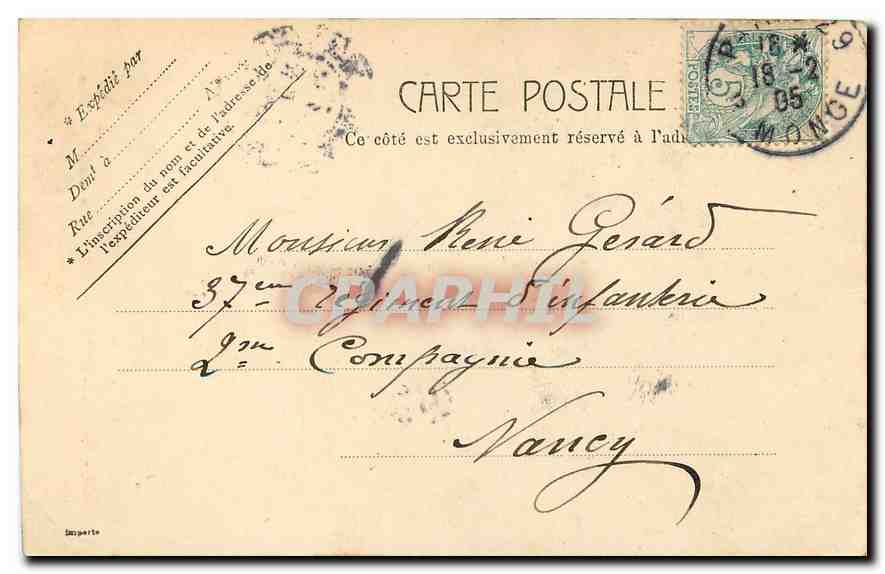 * Expédié par
M
Demt à
Rue
* L'inscription du nom et de l'adresse de
l'expéditeur est facultative.
CARTE POSTALE
Ce côté est exclusivement réservé à l'adr
POSTES
5
18 *
18 - 2
05
MONGE
Monsieur René Gérard
37em régiment d'infanterie
2me Compagnie
Nancy
CPAPHIL
Importe